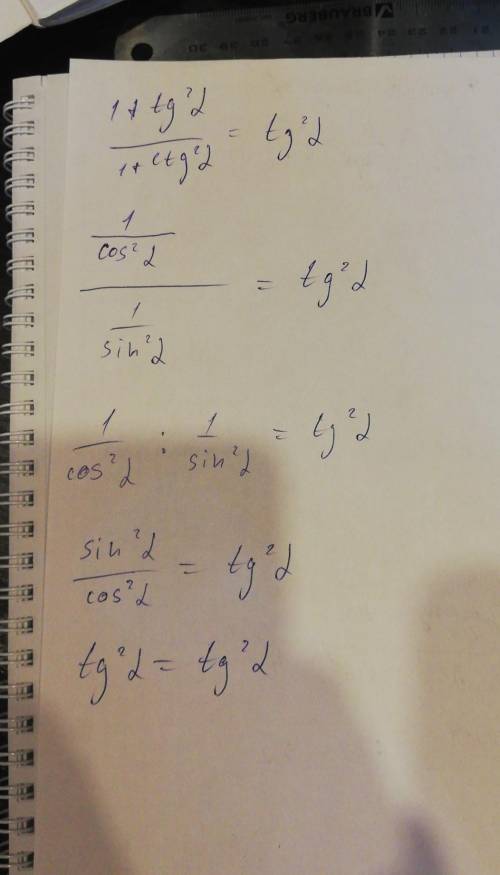 BRAUBERG
(1 + tg²α) / (1 + ctg²α) = tg²α
(1 / cos²α) / (1 / sin²α) = tg²α
1 / cos²α : 1 / sin²α = tg²α
sin²α / cos²α = tg²α
tg²α = tg²α